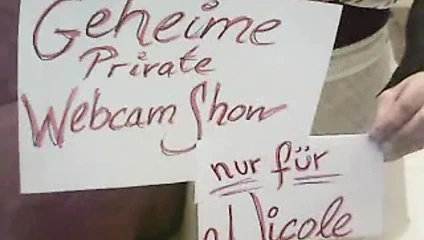 Geheime
Private
Webcam Show
nur für
Nicole